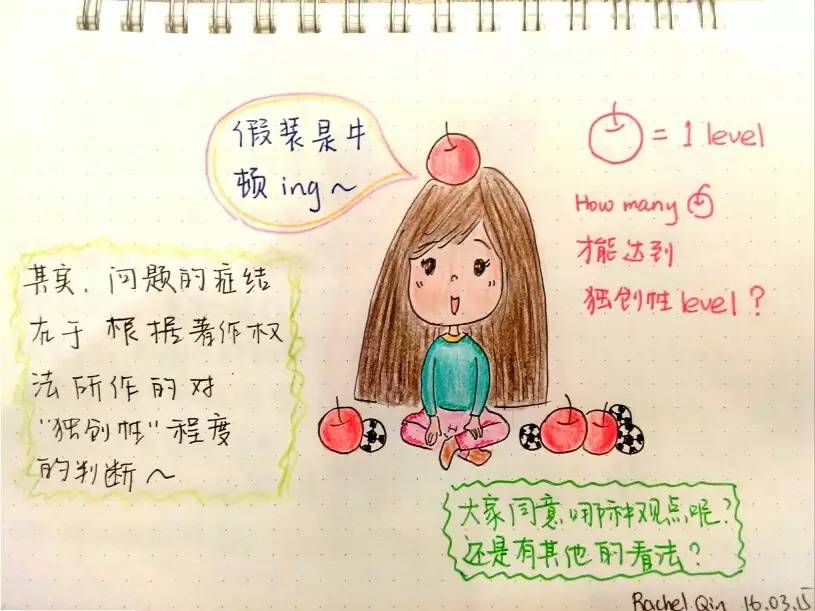 假装是牛
顿 ing ~
= 1 level
How many
才能达到
独创性 level ?
其实，问题的症结
在于根据著作权
法所作的对
"独创性"程度
的判断 ~
大家同意哪种观点呢？
还是有其他的看法？
Rachel. Qin 16.03.15